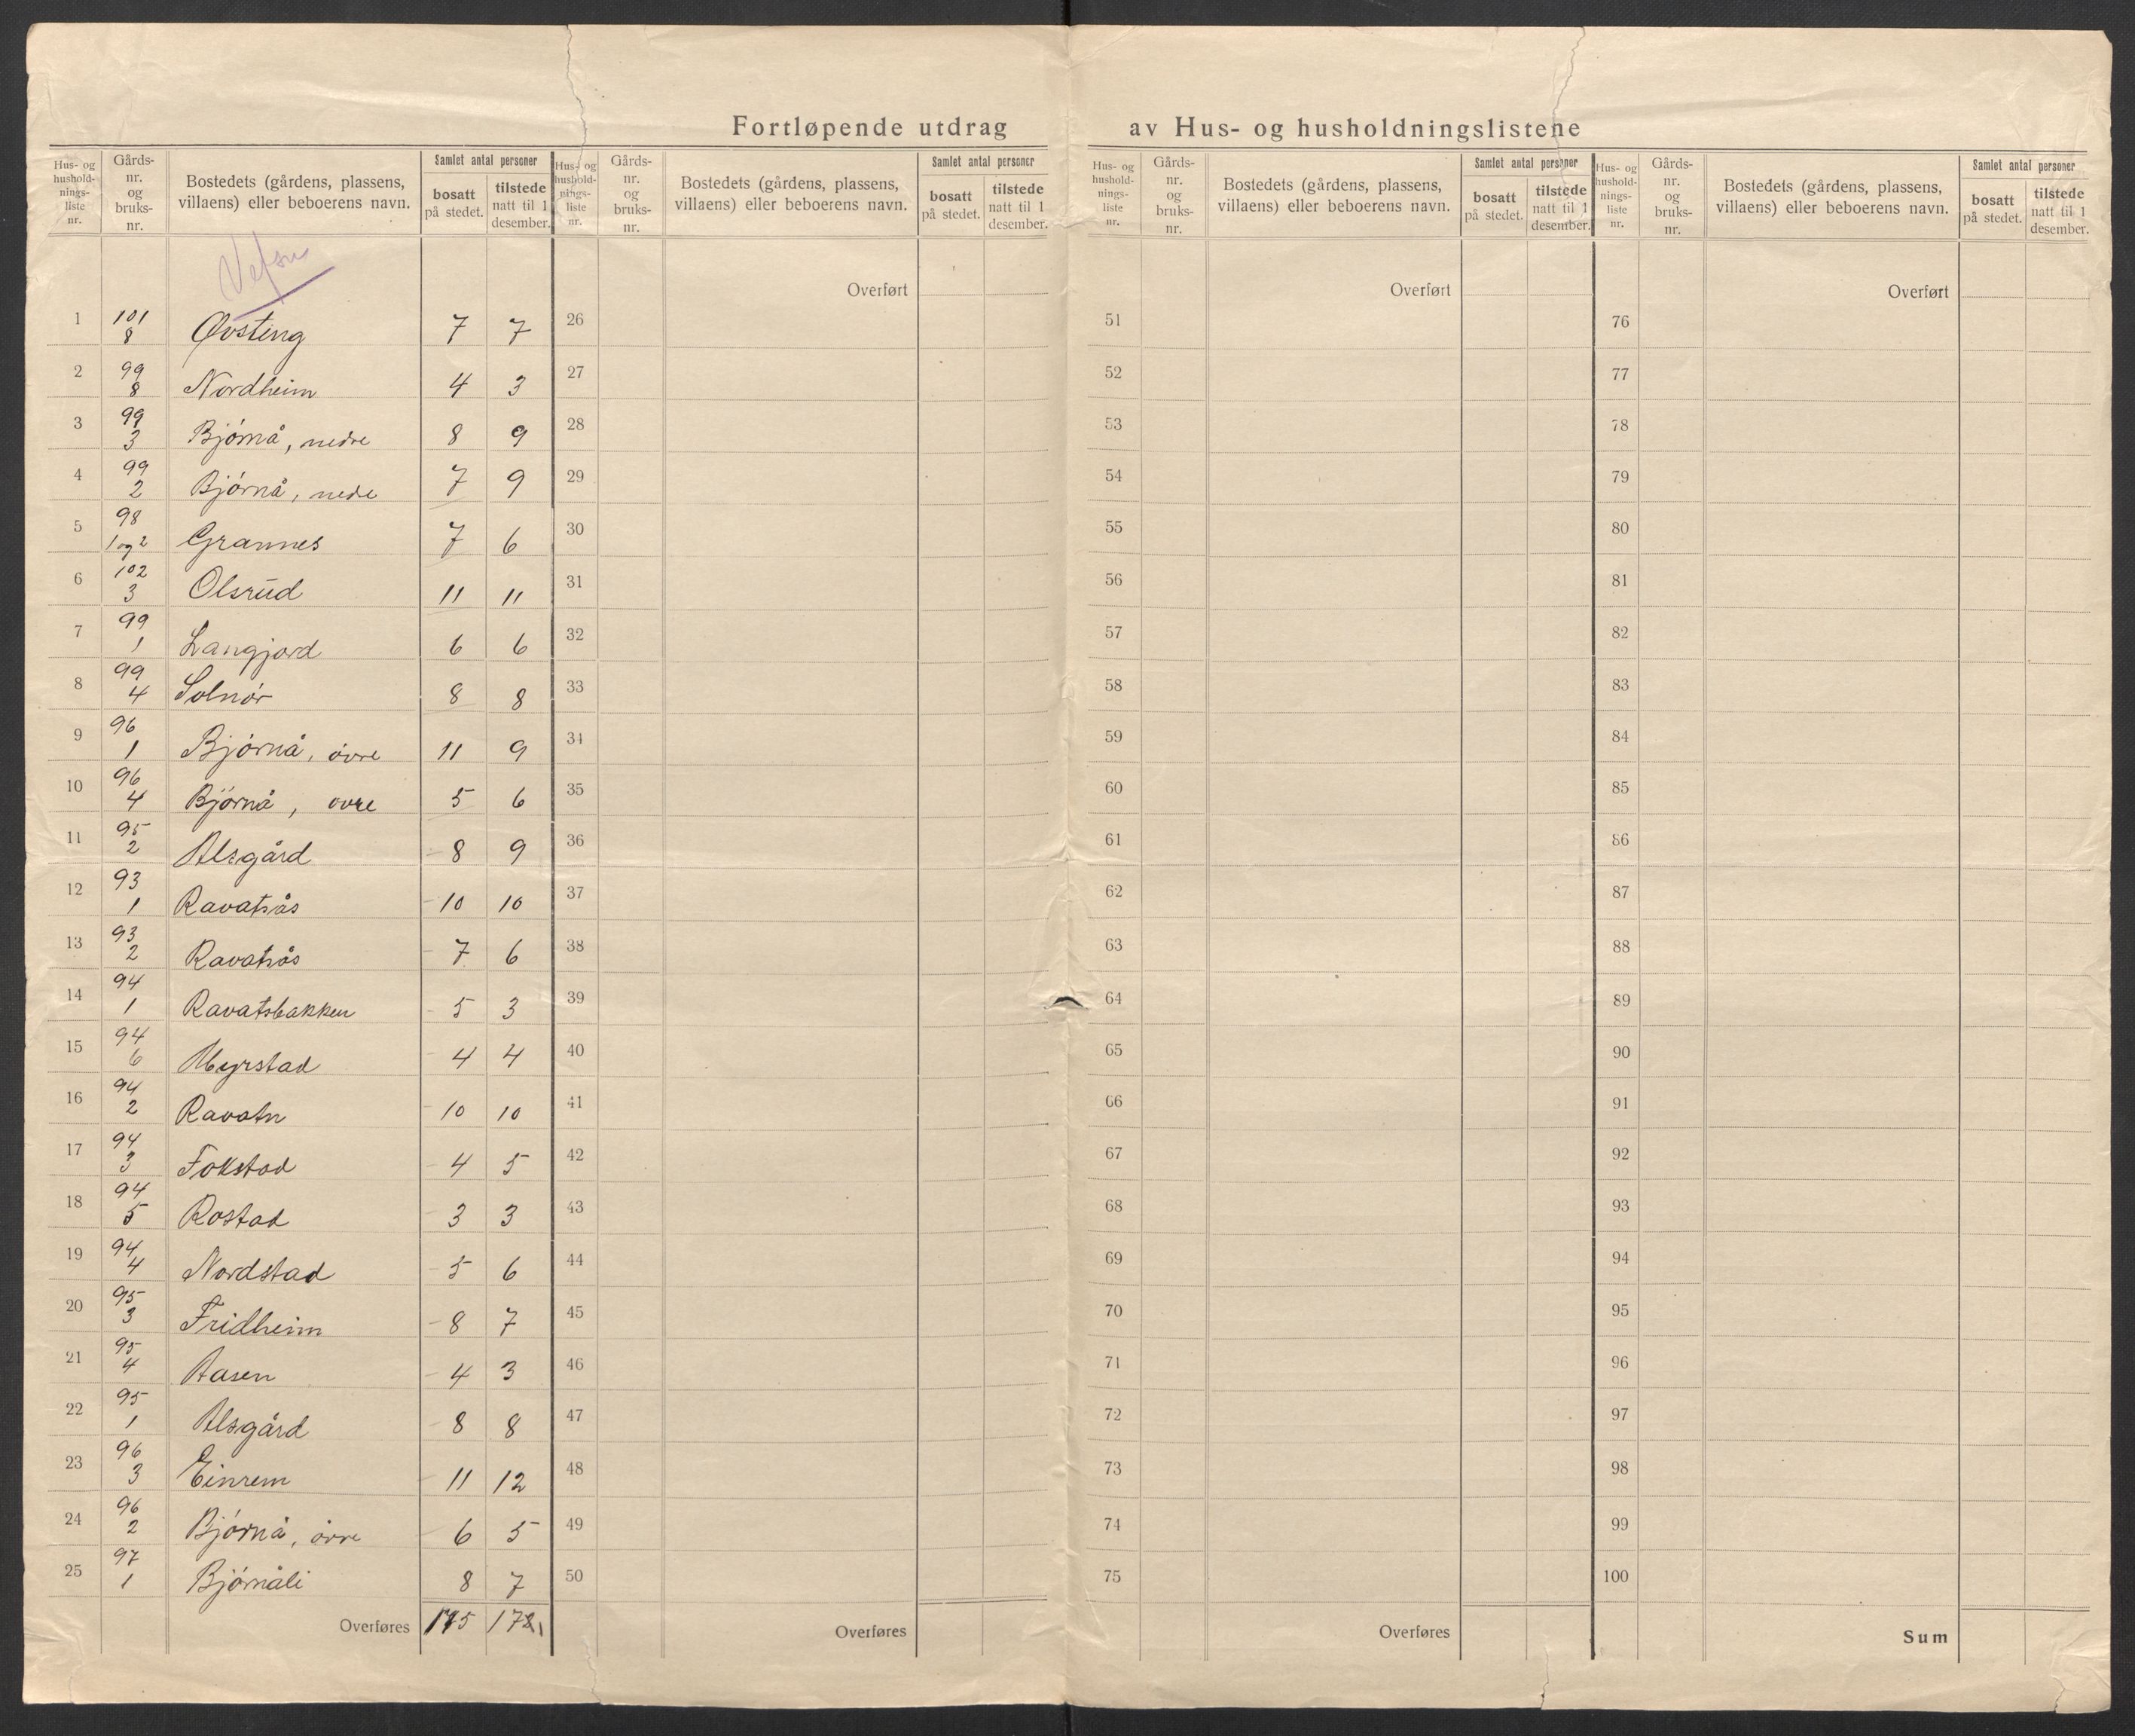 Fortløpende utdrag av Hus- og husholdningslistene
Hus- og hushold-nings-liste nr. Gårds-nr. og bruks-nr. Bostedets (gårdens, plassens, villaens) eller beboerens navn. Samlet antal personer bosatt på stedet. tilstede natt til 1 desember.
Hus- og hushold-nings-liste nr. Gårds-nr. og bruks-nr. Bostedets (gårdens, plassens, villaens) eller beboerens navn. Samlet antal personer bosatt på stedet. tilstede natt til 1 desember.
Hus- og hushold-nings-liste nr. Gårds-nr. og bruks-nr. Bostedets (gårdens, plassens, villaens) eller beboerens navn. Samlet antal personer bosatt på stedet. tilstede natt til 1 desember.
Hus- og hushold-nings-liste nr. Gårds-nr. og bruks-nr. Bostedets (gårdens, plassens, villaens) eller beboerens navn. Samlet antal personer bosatt på stedet. tilstede natt til 1 desember.
Vefsn
Overført Overført Overført
1 101 8 Øvsteng 7 7 26 51 76
2 99 8 Nordheim 4 3 27 52 77
3 99 3 Bjørnå, nedre 8 9 28 53 78
4 99 2 Bjørnå, nede 7 9 29 54 79
5 98 1 og 2 Grannes 7 6 30 55 80
6 102 3 Olsrud 11 11 31 56 81
7 99 1 Langjord 6 6 32 57 82
8 99 4 Solnør 8 8 33 58 83
9 96 1 Bjørnå, øvre 11 9 34 59 84
10 96 4 Bjørnå, ovre 5 6 35 60 85
11 95 2 Alsgård 8 9 36 61 86
12 93 1 Ravatsås 10 10 37 62 87
13 93 2 Ravatsås 7 6 38 63 88
14 94 1 Ravatsbakken 5 3 39 64 89
15 94 6 Myrstad 4 4 40 65 90
16 94 2 Ravatn 10 10 41 66 91
17 94 3 Fokstad 4 5 42 67 92
18 94 5 Rostad 3 3 43 68 93
19 94 4 Nordstad 5 6 44 69 94
20 95 3 Fridheim 8 7 45 70 95
21 95 4 Aasen 4 3 46 71 96
22 95 1 Alsgård 8 8 47 72 97
23 96 3 Einrem 11 12 48 73 98
24 96 2 Bjørnå, øvre 6 5 49 74 99
25 97 1 Bjørnåli 8 7 50 75 100
Overføres 175 172 Overføres Overføres Sum